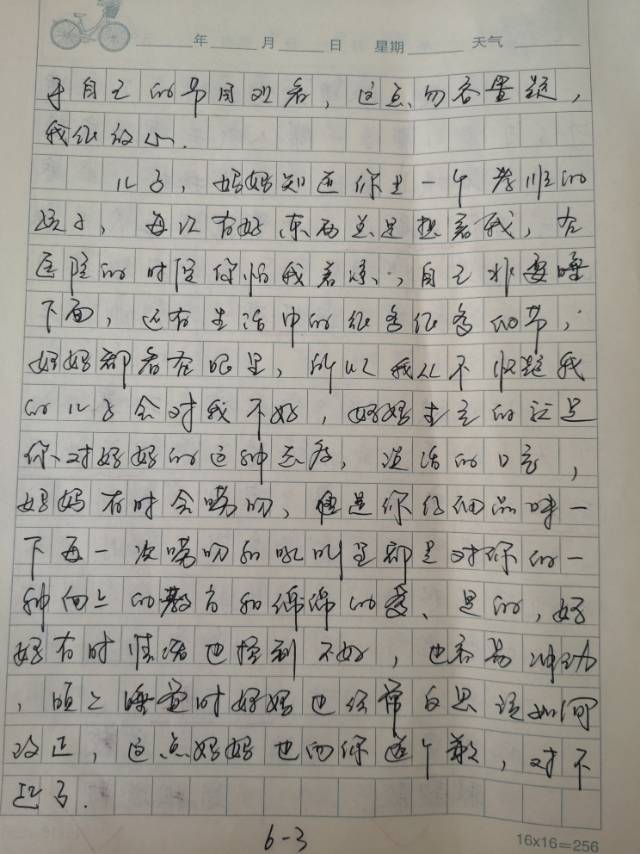 年 月 日 星期 天气
于自己的节目观看，这点勿容置疑，
我很放心.
儿子，妈妈知道你是一个孝顺的
孩子，每次有好东西总是想着我，在
医院的时候你怕我着凉，自己非要睡
下面，还有生活中的很多很多细节，
妈妈都看在眼里，所以我从不怀疑我
的儿子会对我不好，妈妈在意的只是
你对妈妈的这种态度，说话的口气，
妈妈有时会唠叨，但是你仔细品味一
下每一次唠叨和吼叫里都是对你的一
种向上的教育和绵绵的爱、是的，妈
妈有时情绪也控制不好，也容易冲动
，晚上睡觉时妈妈也经常反思该如何
改正，这点妈妈也向你道个歉，对不
起了.
6-3
16x16=256